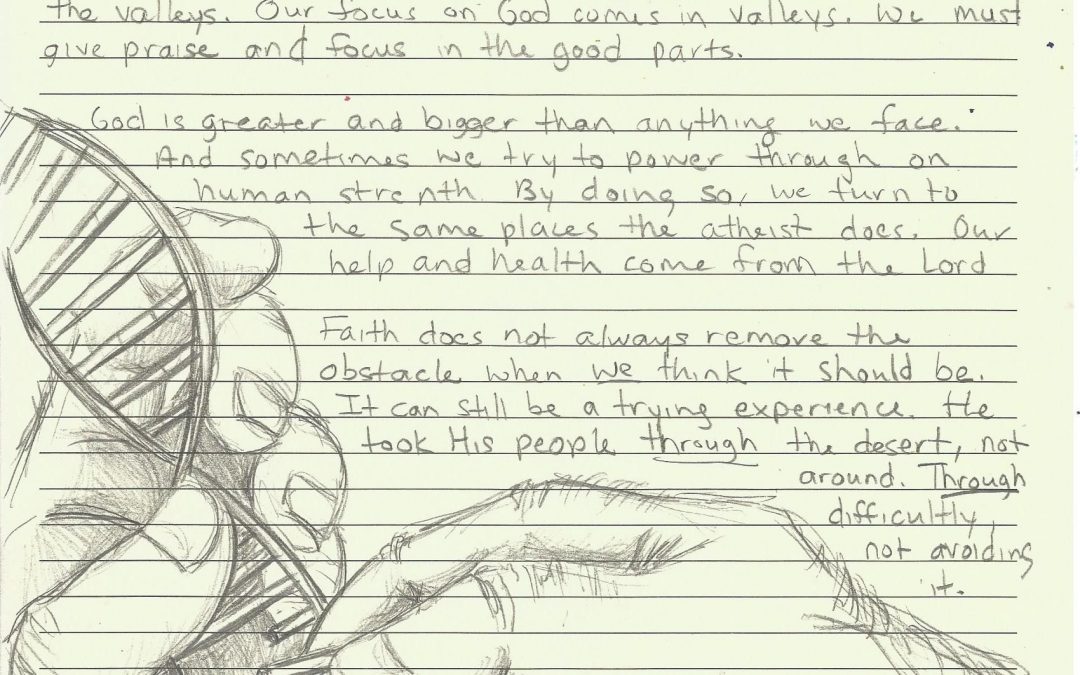 the valleys. Our focus on God comes in valleys. We must
give praise and focus in the good parts.
God is greater and bigger than anything we face.
And sometimes we try to power through on
human strenth. By doing so, we turn to
the same places the atheist does. Our
help and health come from the Lord
Faith does not always remove the
obstacle when we think it should be.
It can still be a trying experience. He
took His people through the desert, not
around. Through
difficultly,
not avoiding
it.